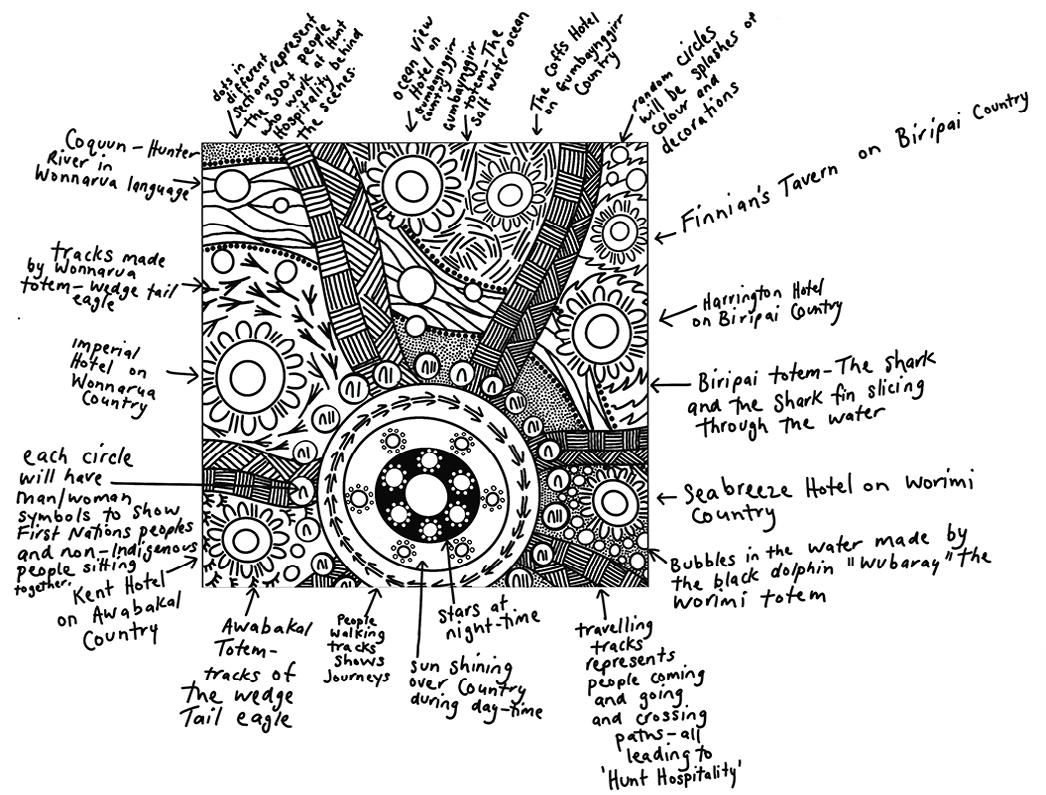 dots in
different
sections represent
the 300+ people
who work at Hunt
Hospitality behind
the scenes.
Ocean View
Hotel on
Gumbaynggirr
Country
Gumbaynggirr
totem-The
salt water ocean
The Coffs Hotel
on Gumbaynggirr
Country
random circles
will be splashes of
colour and
decorations
Coquun-Hunter
River in
Wonnarua language
Finnian's Tavern on Biripai Country
tracks made
by Wonnarua
totem-wedge tail
eagle
Harrington Hotel
on Biripai Country
Imperial
Hotel on
Wonnarua
Country
Biripai totem-The shark
and the shark fin slicing
through the water
each circle
will have
man/woman
symbols to show
First Nations peoples
and non-Indigenous
people sitting
together.
Seabreeze Hotel on Worimi
Country
Kent Hotel
on Awabakal
Country
Bubbles in the water made by
the black dolphin "Wubaray" the
Worimi totem
Awabakal
Totem-
tracks of
the wedge
Tail eagle
People
walking
tracks
shows
Journeys
stars at
night-time
sun shining
over Country
during day-time
travelling
tracks
represents
people coming
and going
and crossing
paths-all
leading to
'Hunt Hospitality'